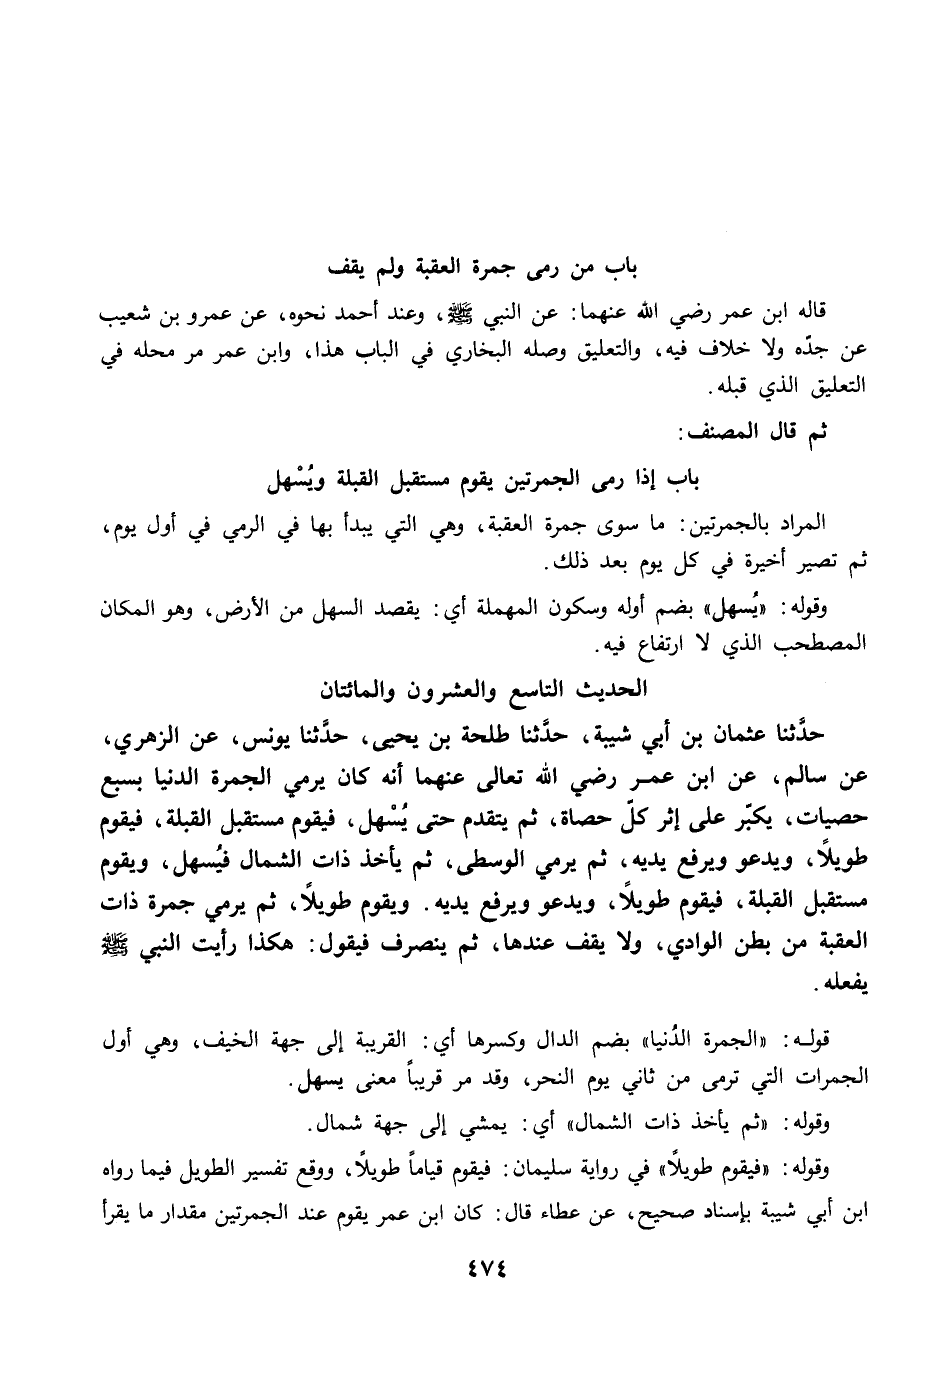 باب من رمى جمرة العقبة ولم يقف
قاله ابن عمر رضي الله عنهما: عن النبي ﷺ، وعند أحمد نحوه، عن عمرو بن شعيب
عن جدّه ولا خلاف فيه، والتعليق وصله البخاري في الباب هذا، وابن عمر مر محله في
التعليق الذي قبله.
ثم قال المصنف:
باب إذا رمى الجمرتين يقوم مستقبل القبلة ويُسْهل
المراد بالجمرتين: ما سوى جمرة العقبة، وهي التي يبدأ بها في الرمي في أول يوم،
ثم تصير أخيرة في كل يوم بعد ذلك.
وقوله: «يُسهل» بضم أوله وسكون المهملة أي: يقصد السهل من الأرض، وهو المكان
المصطحب الذي لا ارتفاع فيه.
الحديث التاسع والعشرون والمائتان
حدَّثنا عثمان بن أبي شيبة، حدَّثنا طلحة بن يحيى، حدَّثنا يونس، عن الزهري،
عن سالم، عن ابن عمر رضي الله تعالى عنهما أنه كان يرمي الجمرة الدنيا بسبع
حصيات، يكبّر على إثر كلّ حصاة، ثم يتقدم حتى يُسْهل، فيقوم مستقبل القبلة، فيقوم
طويلًا، ويدعو ويرفع يديه، ثم يرمي الوسطى، ثم يأخذ ذات الشمال فيُسهل، ويقوم
مستقبل القبلة، فيقوم طويلًا، ويدعو ويرفع يديه. ويقوم طويلًا، ثم يرمي جمرة ذات
العقبة من بطن الوادي، ولا يقف عندها، ثم ينصرف فيقول: هكذا رأيت النبي ﷺ
يفعله.
قوله: «الجمرة الدُنيا» بضم الدال وكسرها أي: القريبة إلى جهة الخيف، وهي أول
الجمرات التي ترمى من ثاني يوم النحر، وقد مر قريباً معنى يسهل.
وقوله: «ثم يأخذ ذات الشمال» أي: يمشي إلى جهة شمال.
وقوله: «فيقوم طويلًا» في رواية سليمان: فيقوم قياماً طويلًا، ووقع تفسير الطويل فيما رواه
ابن أبي شيبة بإسناد صحيح، عن عطاء قال: كان ابن عمر يقوم عند الجمرتين مقدار ما يقرأ
٤٧٤